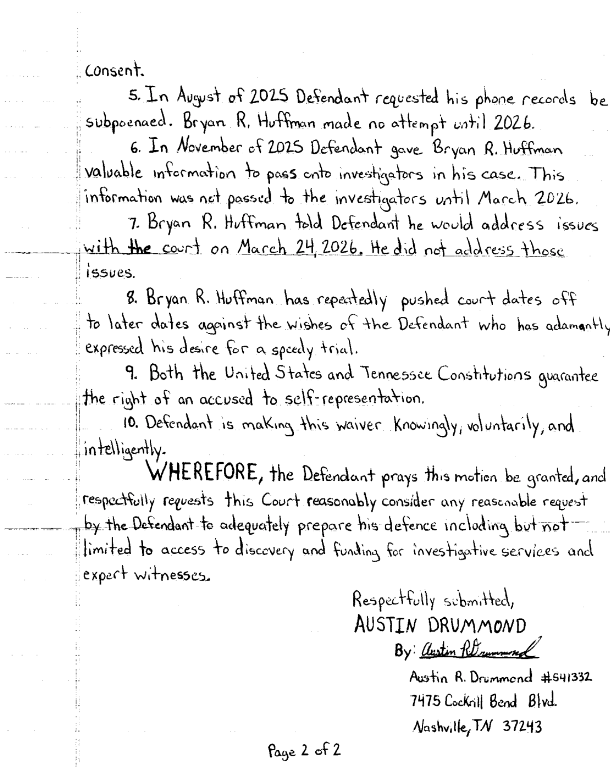 consent.
5. In August of 2025 Defendant requested his phone records be
subpoenaed. Bryan R. Huffman made no attempt until 2026.
6. In November of 2025 Defendant gave Bryan R. Huffman
valuable information to pass onto investigators in his case. This
information was not passed to the investigators until March 2026.
7. Bryan R. Huffman told Defendant he would address issues
with the court on March 24, 2026. He did not address those
issues.
8. Bryan R. Huffman has repeatedly pushed court dates off
to later dates against the wishes of the Defendant who has adamantly
expressed his desire for a speedy trial.
9. Both the United States and Tennessee Constitutions guarantee
the right of an accused to self-representation.
10. Defendant is making this waiver knowingly, voluntarily, and
intelligently.
WHEREFORE, the Defendant prays this motion be granted, and
respectfully requests this Court reasonably consider any reasonable request
by the Defendant to adequately prepare his defence including but not
limited to access to discovery and funding for investigative services and
expert witnesses.
Respectfully submitted,
AUSTIN DRUMMOND
By: Austin R Drummond
Austin R. Drummond #541332
7475 Cockrill Bend Blvd.
Nashville, TN 37243
Page 2 of 2